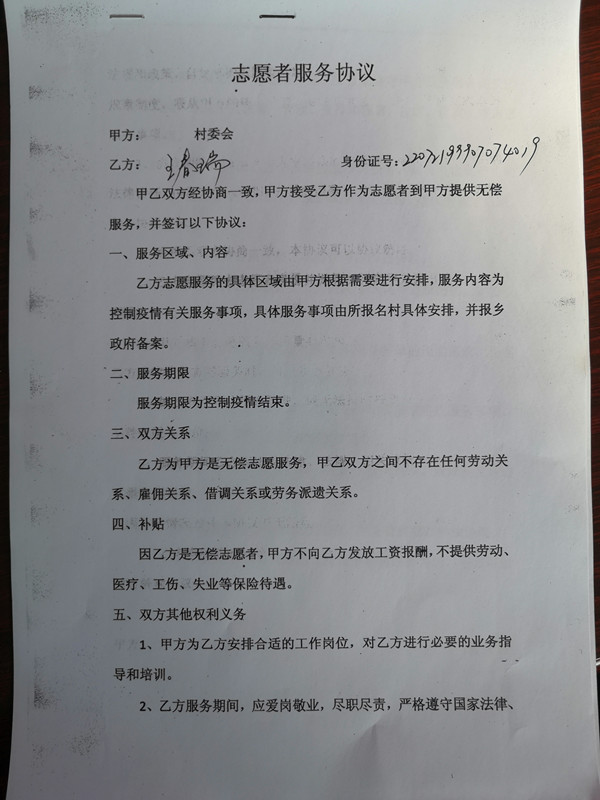 志愿者服务协议
甲方： 村委会
乙方： 王春瑞 身份证号：22072193307074019
甲乙双方经协商一致，甲方接受乙方作为志愿者到甲方提供无偿
服务，并签订以下协议：
一、服务区域、内容
乙方志愿服务的具体区域由甲方根据需要进行安排，服务内容为
控制疫情有关服务事项，具体服务事项由所报名村具体安排，并报乡
政府备案。
二、服务期限
服务期限为控制疫情结束。
三、双方关系
乙方为甲方是无偿志愿服务，甲乙双方之间不存在任何劳动关
系、雇佣关系、借调关系或劳务派遣关系。
四、补贴
因乙方是无偿志愿者，甲方不向乙方发放工资报酬，不提供劳动、
医疗、工伤、失业等保险待遇。
五、双方其他权利义务
1、甲方为乙方安排合适的工作岗位，对乙方进行必要的业务指
导和培训。
2、乙方服务期间，应爱岗敬业，尽职尽责，严格遵守国家法律、